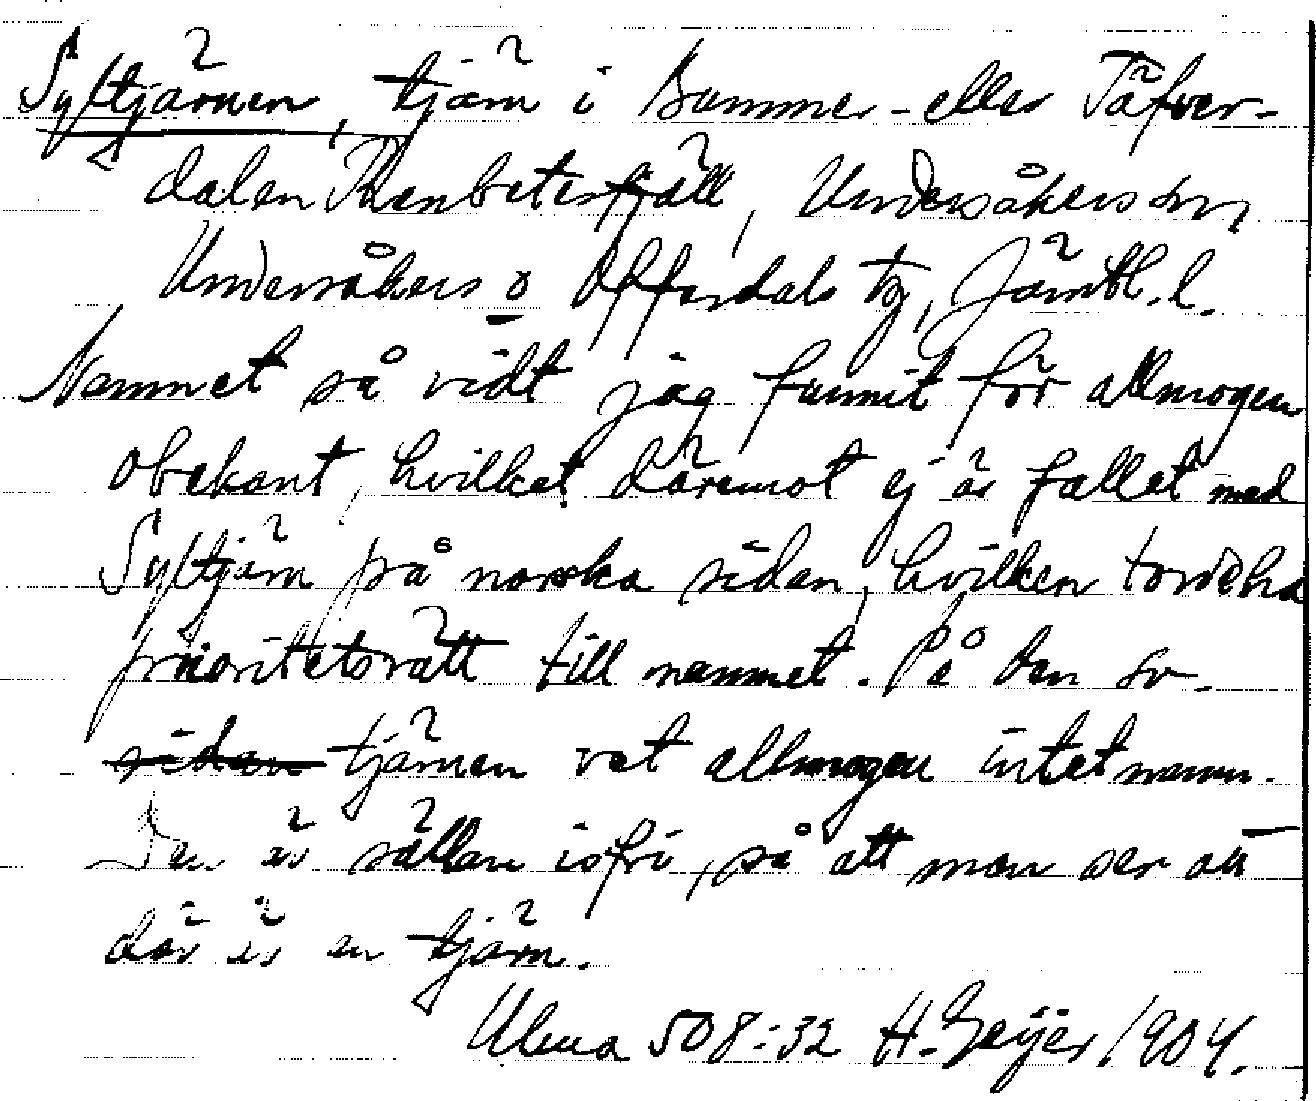 Syltjärnen, tjärn i Bumme- eller Täfver-
dalen Renbetesfjäll, Undersåkers sn,
Undersåkers o Offerdals tg, Jämtl. l.
Namnet så vidt jag funnit för allmogen
obekant, hvilket däremot ej är fallet med
Syltjärn på norska sidan, hvilken torde ha
prioritetsrätt till namnet. På den sv.
sidan tjärnen vet allmogen intet namn.
Den är sällan isfri, så att man ser att
där är en tjärn.
Ulma 508:32 H. Geijer 1904.